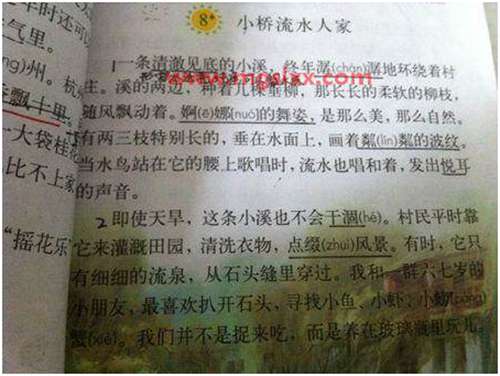 年时还可
气里。
州。杭
香飘十里
一大袋桂花
比不上家
“摇花乐”
8*
小桥流水人家
1一条清澈见底的小溪，终年潺(chán)潺地环绕着村
庄。溪的两边，种着几棵垂柳，那长长的柔软的柳枝，
随风飘动着。婀(ē)娜(nuó)的舞姿，是那么美，那么自然。
有两三枝特别长的，垂在水面上，画着粼(lín)粼的波纹。
当水鸟站在它的腰上歌唱时，流水也唱和着，发出悦耳
的声音。
2即使天旱，这条小溪也不会干涸(hé)。村民平时靠
它来灌溉田园，清洗衣物，点缀(zhuì)风景。有时，它只
有细细的流泉，从石头缝里穿过。我和一群六七岁的
小朋友，最喜欢扒开石头，寻找小鱼、小虾、小螃(páng)
蟹(xiè)。我们并不是捉来吃，而是养在玻璃瓶里玩儿。